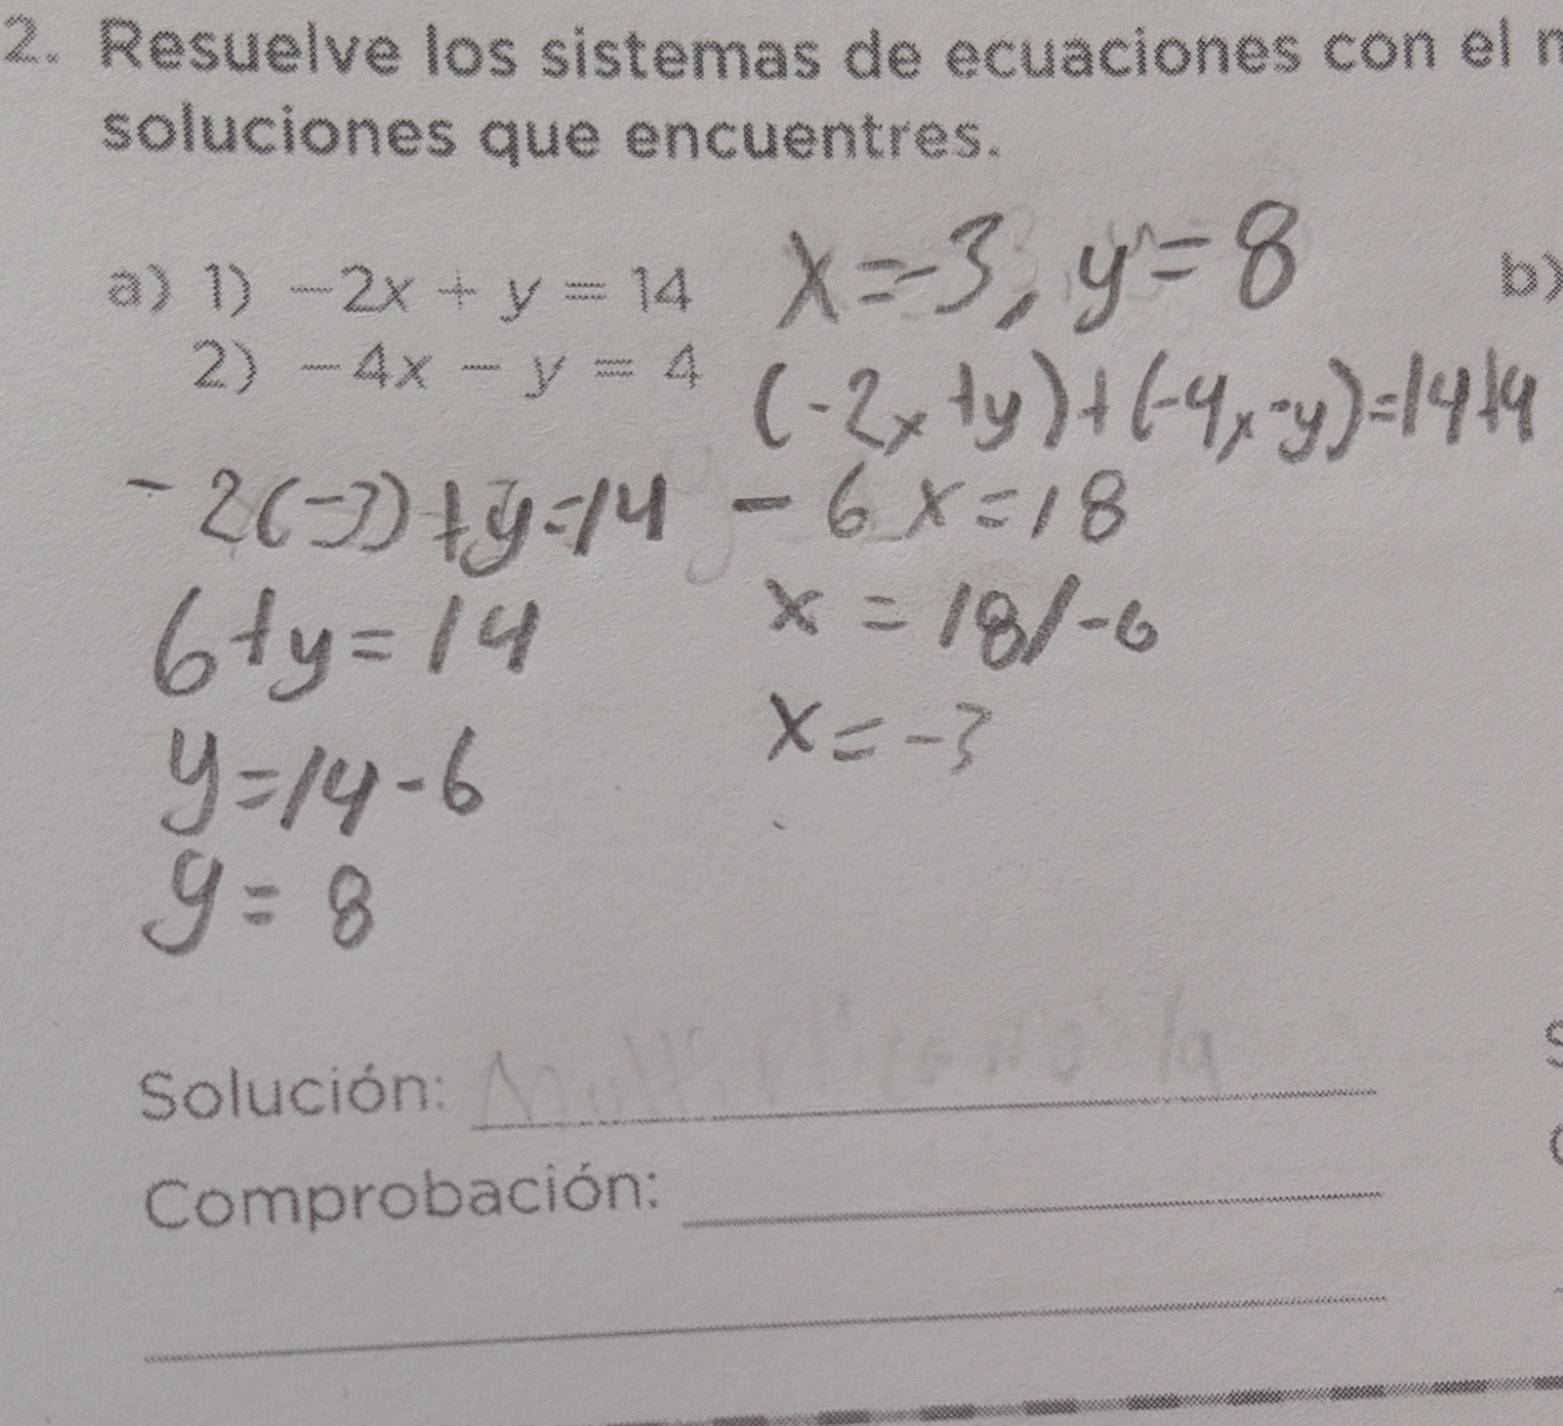 2. Resuelve los sistemas de ecuaciones con el
soluciones que encuentres.
a) 1) -2x + y = 14
x=-3, y=8
b)
2) -4x - y = 4
(-2x+y)+(-4x-y)=14+4
-2(-3)+y=14
-6x=18
6+y=14
x=18/-6
y=14-6
x=-3
y=8
Solución:
Comprobación: